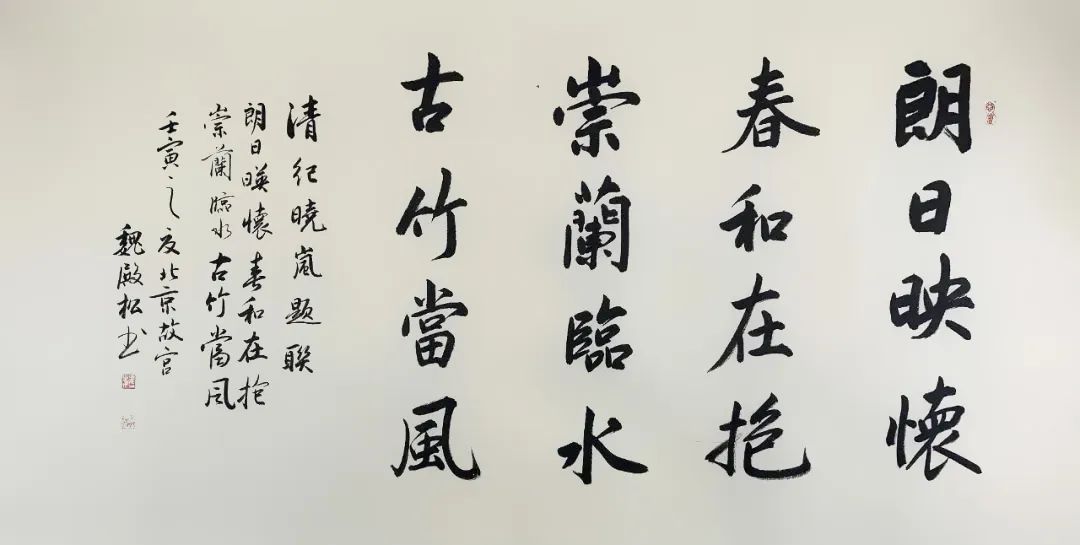 朗日映懷
春和在抱
崇蘭臨水
古竹當風
清纪曉嵐题聯
朗日暎懷春和在抱
崇蘭臨水古竹當风
壬寅之夏北京故宫
魏殿松书